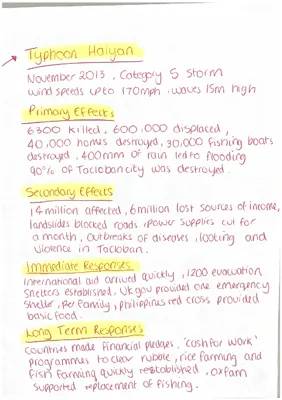 Typhoon Haiyan
November 2013, Category 5 Storm
wind speeds up to 170mph, waves 15m high
Primary Effects
6300 killed, 600,000 displaced,
40,000 homes destroyed, 30,000 fishing boats
destroyed. 400mm of rain led to flooding
90% of Tacloban city was destroyed.
Secondary Effects
14 million affected, 6 million lost sources of income,
landslides blocked roads, power supplies cut for
a month, outbreaks of diseases, looting and
violence in Tacloban.
Immediate Responses
International aid arrived quickly, 1200 evacuation
shelters established. UK gov provided one emergency
shelter per family, philippines red cross provided
basic food.
Long Term Responses
Countries made financial pledges, 'cash for work'
programmes to clear rubble, rice farming and
fish farming quickly restablished, oxfam
supported replacement of fishing.